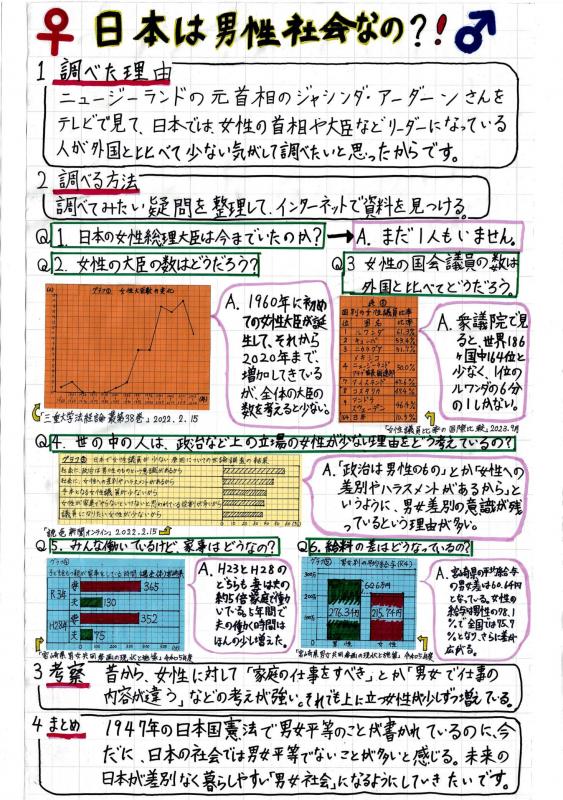 ♀日本は男性社会なの?!♂
1 調べた理由
ニュージーランドの元首相のジャシンダ・アーダーンさんを
テレビで見て、日本では女性の首相や大臣などリーダーになっている
人が外国と比べて少ない気がして調べたいと思ったからです。
2 調べる方法
調べてみたい疑問を整理して、インターネットで資料を見つける。
Q1.日本の女性総理大臣は今までいたのか?→A.まだ1人もいません。
Q2.女性の大臣の数はどうだろう?
グラフ① 女性大臣数の変化
A.1960年に初め
ての女性大臣が誕
生して、それから
2020年まで、
増加してきている
が、全体の大臣の
数を考えると少ない。
「三重大学法経論叢第38巻」2022.2.15
Q3 女性の国会議員の数は
外国と比べてどうだろう。
表①
国別の女性議員比率
位 国名 比率
1 ルワンダ 61.3%
2 キューバ 53.4%
3 ニカラグア 51.7%
メキシコ
4 ニュージーランド 50.0%
アラブ首長国連邦
7 アイスランド 47.6%
8 コスタリカ 47.4%
9 アンドラ
スウェーデン 46.4%
164 日本 10.3%
A.衆議院で見
ると、世界186
ヶ国中164位と
少なく、1位の
ルワンダの6分
の1しかない。
「女性議員比率の国際比較」2023.9月
Q4.世の中の人は、政治など上の立場の女性が少ない理由をどう考えているの?
社会に政治は男性のものという意識があるから
社会に、女性への差別やハラスメントがあるから
手本となる女性議員が少ないから
議員になりたい女性が少ないから
「読売新聞オンライン」2022.2.15
A.「政治は男性のもの」とか「女性への
差別やハラスメントがあるから」と
いうように、男女差別の意識が残
っているという理由が多い。
Q5.みんな働いているけど、家事はどうなの?
R3年 妻 365
夫 130
H28年 妻 352
夫 75
「宮崎県男女共同参画の現状と施策」令和5年度
A.H23とH28の
どちらも妻は夫の
約5倍家庭で働い
ている。5年間で
夫の働く時間は
ほんの少し増えた。
Q6.給料の差はどうなっているの?
男女別の平均給与(R4)
276.3千円
215.7千円
60.6千円
男性 女性
「宮崎県男女共同参画の現状と施策」令和5年度
A.宮崎県の平均給与
の男女差は60.6千円
となっている。女性の
給与は男性の78.1
%で全国では75.7
%となり、さらに差が
広がる。
3 考察 昔から、女性に対して「家庭の仕事をすべき」とか「男女で仕事の
内容が違う」などの考えが強い。それでも上に立つ女性が少しずつ増えている。
4 まとめ 1947年の日本国憲法で男女平等のことが書かれているのに、今
だに、日本の社会では男女平等でないことが多いと感じる。未来の
日本が差別なく暮らしやすい「男女社会」になるようにしていきたいです。